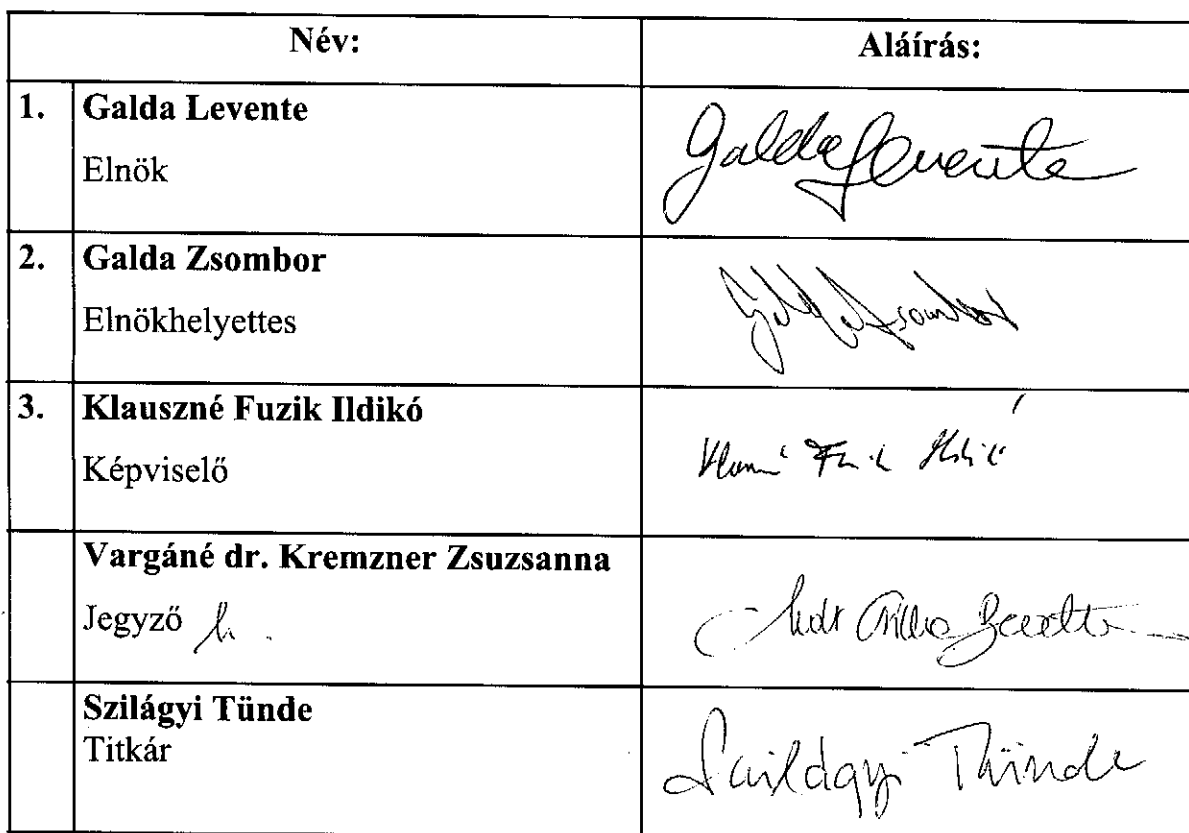 Név: Aláírás:
1. Galda Levente
Elnök
Galda Levente
2. Galda Zsombor
Elnökhelyettes
Galda Zsombor
3. Klauszné Fuzik Ildikó
Képviselő
Fuzik Ildikó
Vargáné dr. Kremzner Zsuzsanna
Jegyző h.
Szilágyi Tünde
Titkár
Szilágyi Tünde